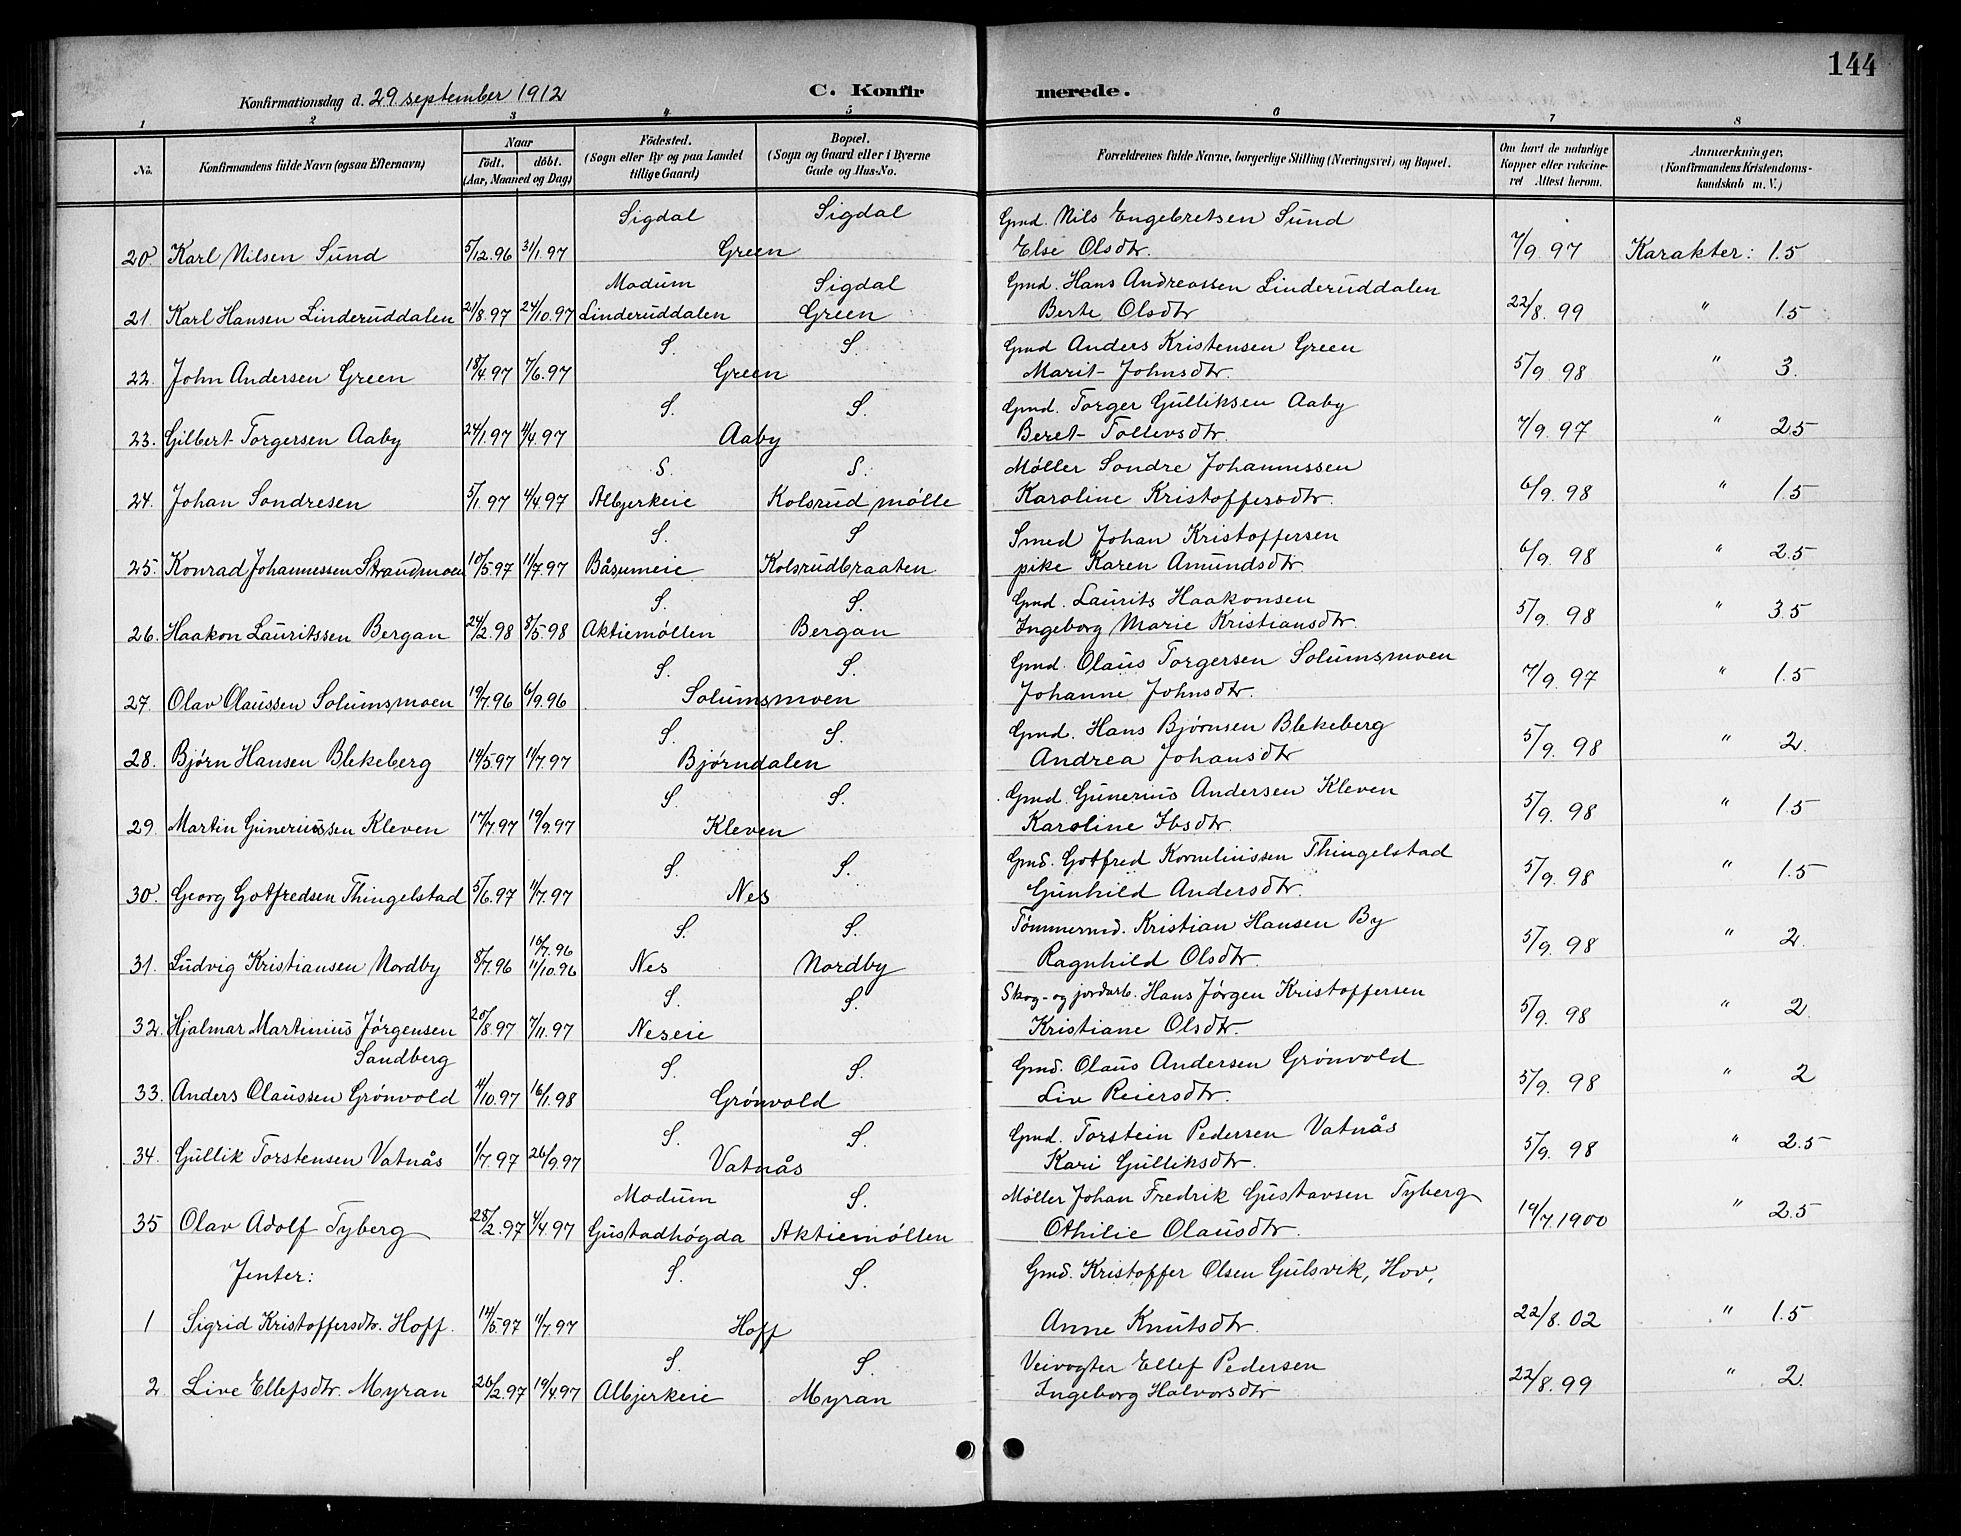 144
Konfirmationsdag d. 29 september 1912 C. Konfir merede.
1 2 3 4 5 6 7 8
No. Konfirmandens fulde Navn (ogsaa Efternavn) Naar født. døbt. (Aar, Maaned og Dag) Fødested. (Sogn eller By og paa Landet tillige Gaard) Bopæl. (Sogn og Gaard eller i Byerne Gade og Hus-No. Forældrenes fulde Navne, borgerlige Stilling (Næringsvei) og Bopæl. Om havt de naturlige Kopper eller vakcineret Attest herom. Anmærkninger, (Konfirmandens Kristendomskundskab m. V.)
Sigdal Sigdal Gmd. Nils Engebretsen Sund
20. Karl Nilsen Sund 5/12.96 31/1.97 Green Else Olsdtr. 7/9 97 Karakter: 1.5
Modum Sigdal Gmd. Hans Andreassen Linderuddalen
21. Karl Hansen Linderuddalen 21/8.97 24/10.97 Linderuddalen Green Berte Olsdtr 22/8. 99 " 1.5
S. S. Gmd Anders Kristensen Green
22. John Andersen Green 18/4.97 7/6.97 Green Marit Johnsdtr. 5/9 98 " 3.
S. S. Gmd. Torger Gulliksen Aaby
23. Gilbert Torgersen Aaby 24/1.97 4/4.97 Aaby Beret Tollevsdtr. 7/9. 97 " 2.5
S. S. Møller Sondre Johannessen
24. Johan Sondresen 5/1.97 4/4.97 Albjerkeie Kolsrud mølle Karoline Kristoffersdtr. 6/9. 98 " 1.5
S. S Smed Johan Kristoffersen
25. Konrad Johannessen Strandmoen 10/5.97 11/7.97 Båsumeie Kolsrudbraaten pike Karen Amundsdtr 6/9. 98 " 2.5
S. S. Gmd. Laurits Haakonsen
26. Haakon Lauritssen Bergan 24/2.98 8/5.98 Aktiemøllen Bergan Ingeborg Marie Kristiansdtr. 5/9. 98 " 3.5
S. S. Gmd. Olaus Torgersen Solumsmoen
27. Olav Olaussen Solumsmoen 19/7.96 6/9.96 Solumsmoen Johanne Johnsdtr. 7/9. 97 " 1.5
S. S. Gmd. Hans Bjørnsen Blekeberg
28. Bjørn Hansen Blekeberg 14/5.97 11/7.97 Bjørndalen Andrea Johansdtr 5/9. 98 " 2.
S. S. Gmd. Gunerius Andersen Kleven
29. Martin Gunerius̈sen Kleven 17/7.97 19/9.97 Kleven Karoline Ibsdtr. 5/9. 98 " 1.5
S. S. Gmd. Gotfred Korneliussen Thingelstad
30. Georg Gotfredsen Thingelstad 5/6.97 11/7.97 Nes Gunhild Andersdtr. 5/9. 98 " 1.5
S. S. Tømmermd. Kristian Hansen By
31. Ludvig Kristiansen Nordby 8/7.96 16/7.96 11/10.96 Nes Nordby Ragnhild Olsdtr. 5/9. 98 " 2.
S. S. Skog- og jordarb. Hans Jørgen Kristoffersen
32. Hjalmar Martinius Jørgensen 20/8.97 7/11.97 Neseie Kristiane Olsdtr. 5/9. 98 " 2.
Sandberg S. S. Gmd. Olaus Andersen Grønvold
33. Anders Olaussen Grønvold 4/10.97 16/1.98 Grønvold Liv Reiersdtr. 5/9. 98 " 2
S. S. Gmd. Torstein Pedersen Vatnås
34. Gullik Torstensen Vatnås 1/7.97 26/9.97 Vatnås Kari Gulliksdtr. 5/9. 98 " 2.5
Modum S. Møller Johan Fredrik Gustavsen Tyberg
35 Olav Adolf Tyberg 25/2.97 4/4.97 Gustadhøgda Aktiemøllen Othilie Olausdtr. 19/7.1900 " 2.5
Jenter: S. S. Gmd. Kristoffer Olsen Gulsvik, Hov,
1 Sigrid Kristoffersdtr. Hoff. 14/5.97 11/7.97 Hoff Anne Knutsdtr. 22/8. 02 " 1.5
S. S. Veivogter Ellef Pedersen
2 Live Ellefsdtr. Myran 26/2.97 19/4.97 Albjerkeie Myran Ingeborg Halvorsdtr 22/8. 99 " 2.